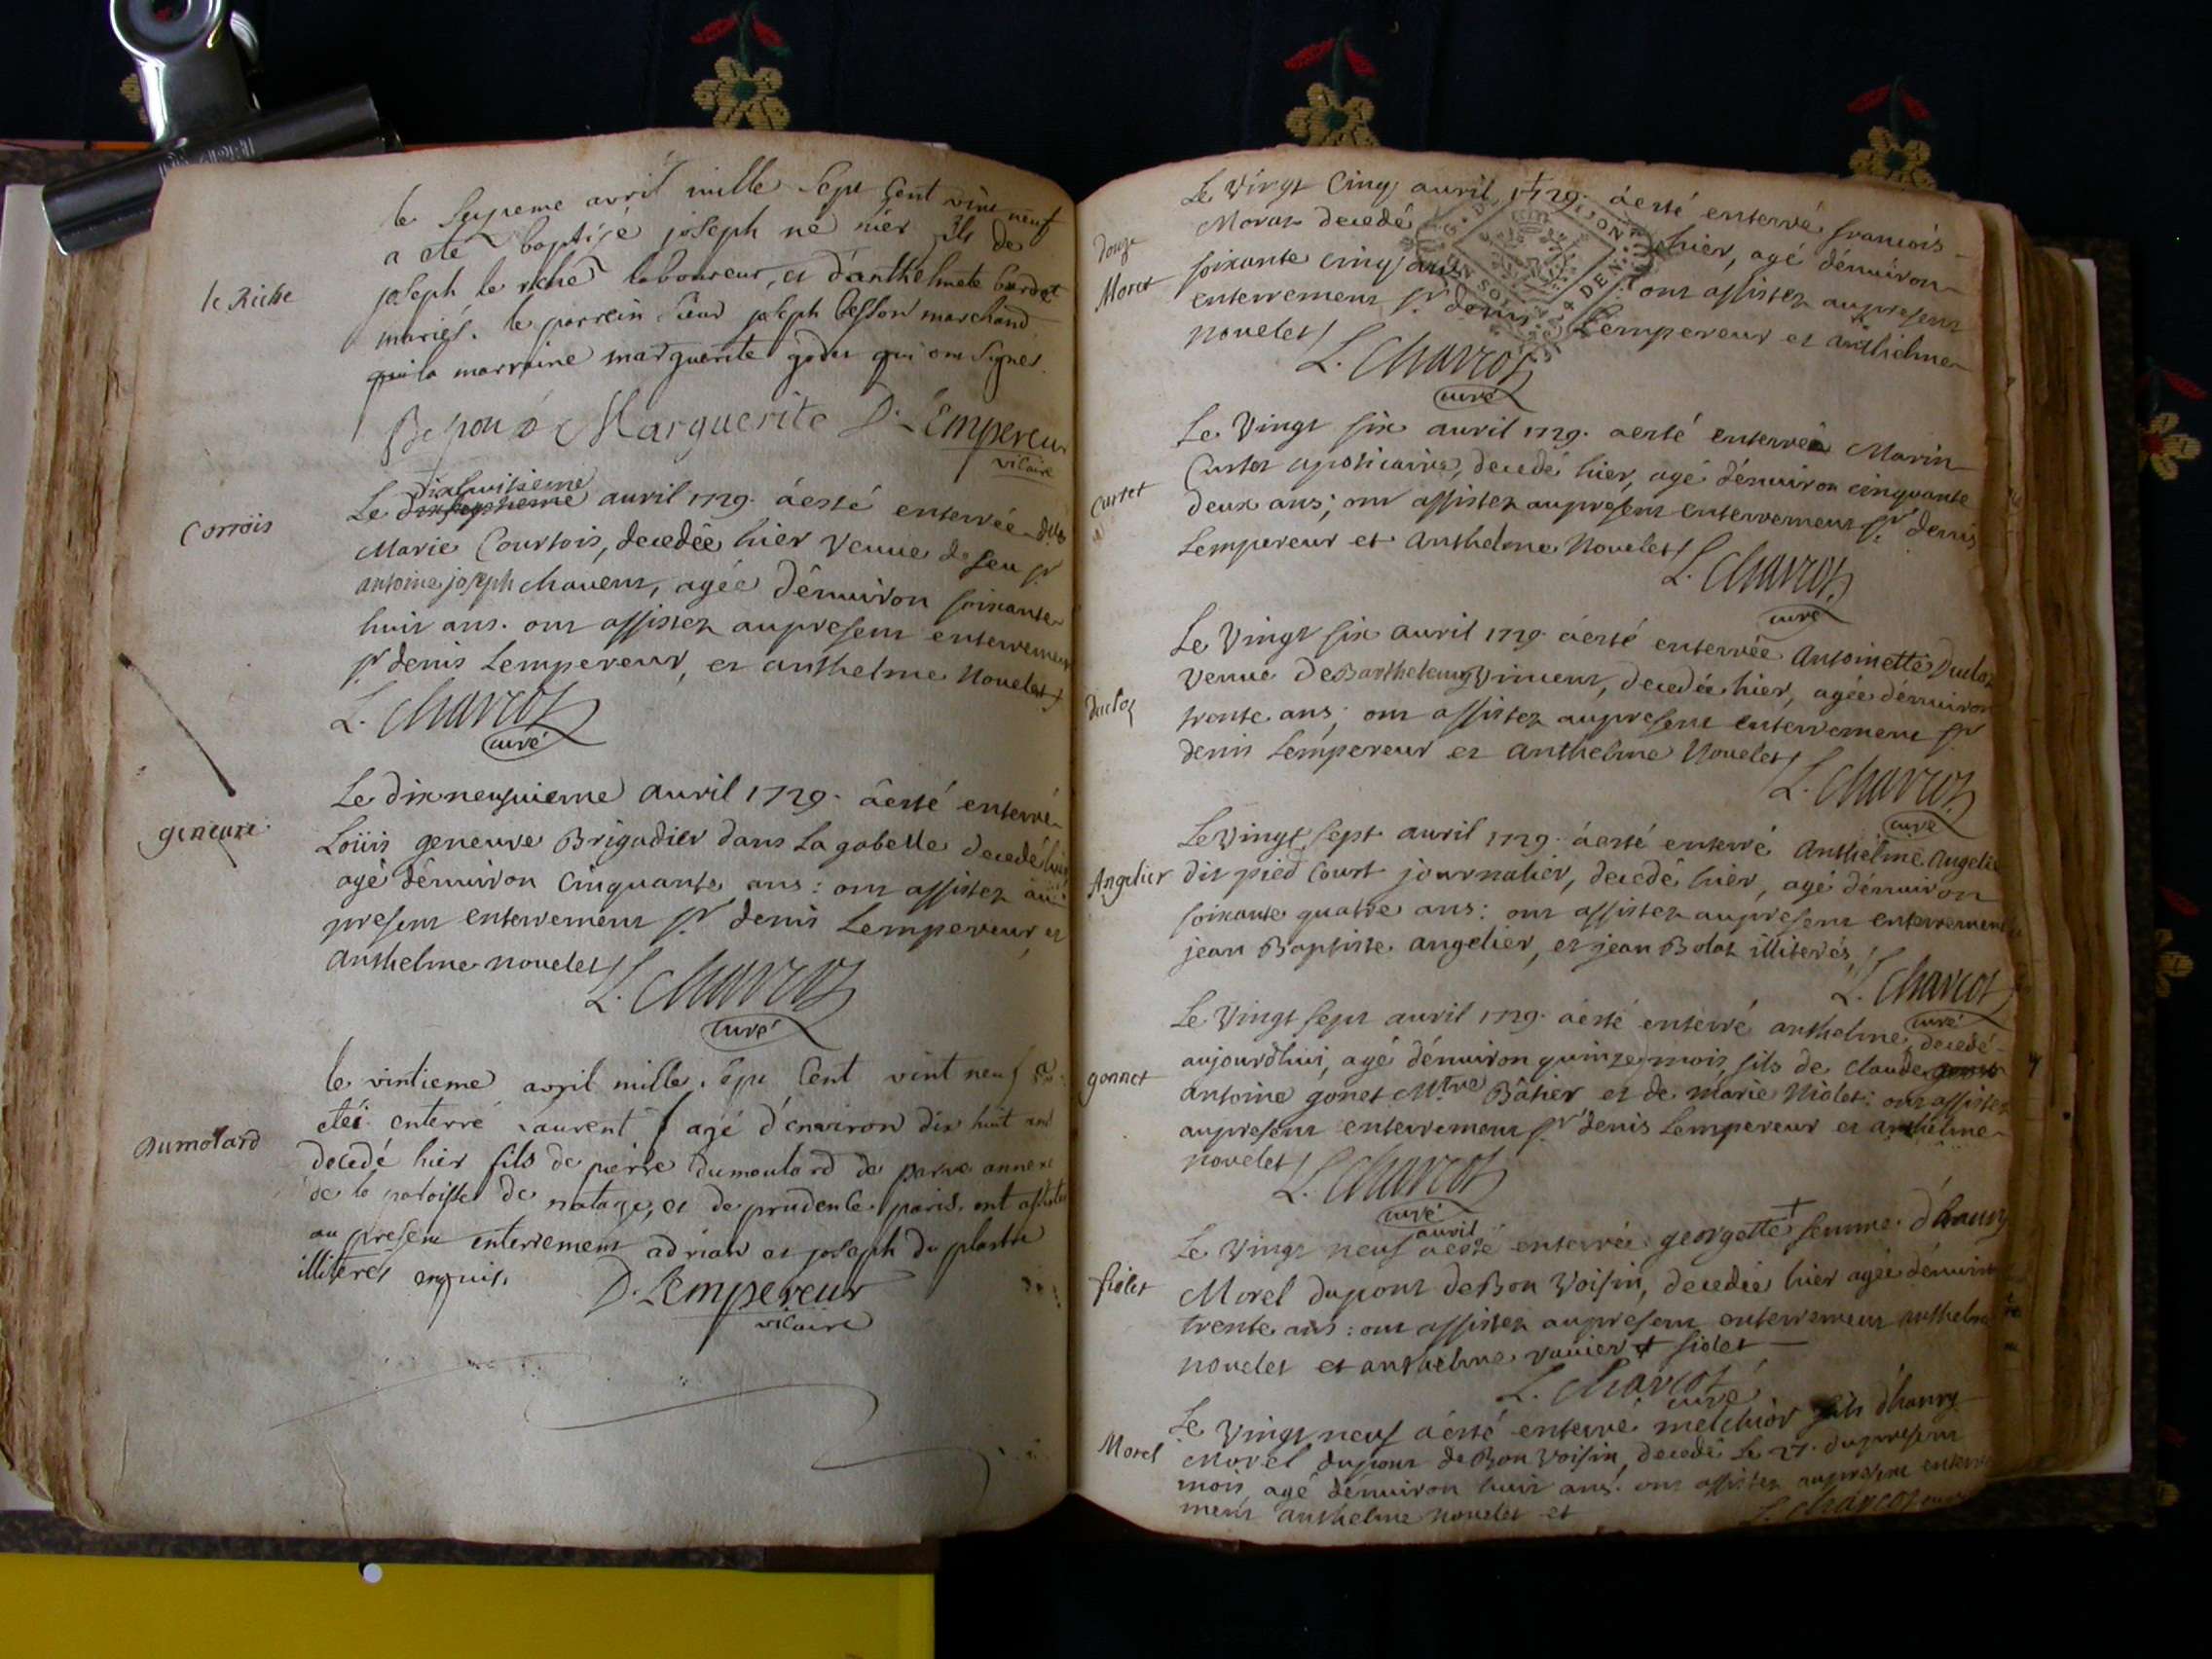 le Septieme avril mille Sept Cent vint neuf
a eté baptisé joseph né hier fils de
le Riche
joseph le riche laboureur, et d'anthelmete burdet
mariés. le parrein Sieur joseph besson marchand
la marraine marguerite godet qui ont Signés.
Besson Marguerite D. LEmpereur
vicaire
dixhuitieme
Le dixseptieme auril 1729. á esté enterrée dlle
Corrois
Marie Courtois, decedée hier veuue de feu sr
antoine joseph chauent, agée d'énuiron soixante
huit ans. ont assistez au present enterrement
sr denis Lempereur, et anthelme Nouelet
L. Charcot
curé
Le dixneufuieme auril 1729. á esté enterré
geneure
Loüis geneuve Brigadier dans La gabelle decedé hier
agé d'énuiron Cinquante ans: ont assistez au
present enterrement sr denis Lempereur, et
anthelme nouelet
L. Charcot
curé
le vintieme avril mille Sept Cent vint neuf a
etéi enterré Laurent agé d'environ dix huit ans
Dumolard
decedé hier fils de pierre dumoulard de parve annexe
de la paroisse de natage, et de prudence paris. ont assistés
au present enterrement adrian et joseph du plastre
illiterés enquis.
D. LEmpereur
vicaire
Le Vingt Cinq auril 1729. á esté enterré francois
douze
Moraz decedé hier, agé d'énuiron
Moret
soixante cinq ans ont assistez au present
enterrement sr denis Lempereur et anthelme
nouelet
L. Charcot
curé
Le Vingt six auril 1729. a esté enterré Marin
Curtet
Curtet apoticaire, decedé hier, agé d'énuiron cinquante
deux ans; ont assistez au présent enterrement sr denis
Lempereur et Anthelme Nouelet
L. Charcot
curé
Le Vingt six auril 1729. á esté enterrée Antoinette Ducloz
ducloz
veuue de Barthelemy Vincent, decedée hier, agée d'énuiron
trente ans; ont assistez au present enterrement sr
denis Lempereur et anthelme Nouelet
L. Charcot
curé
Le Vingt sept auril 1729. á esté enterré Anthelme Angelier
Angelier
dit pied Court journalier, decedé hier, agé d'énuiron
soixante quatre ans: ont assistez au present enterrement
jean Baptiste angelier, et jean Bolot illiterés
L. Charcot
curé
Le Vingt sept auril 1729. á esté enterré anthelme, decedé
aujourd'hui, agé d'énuiron quinze mois, fils de Claude
gonnet
Antoine gonet Mtre Bâtier et de marie Niolet: ont assistez
au present enterrement sr denis Lempereur et anthelme
nouelet
L. Charcot
curé
auril
Le Vingt neuf á esté enterrée georgette + femme d'haury
fiolet
Morel du pont de Bon Voisin, decedée hier agée d'énuiron
trente ans: ont assistez au present enterrement anthelme
nouelet et anthelme vuuier + fiolet
L. Charcot
curé
Le Vingt neuf á esté enterré melchior fils d'haury
Morel
Morel du pont de Bon Voisin, decedé Le 27. du present
mois, agé d'énuiron huit ans: ont assistez au present enterre
ment anthelme nouelet et
L. Charcot curé